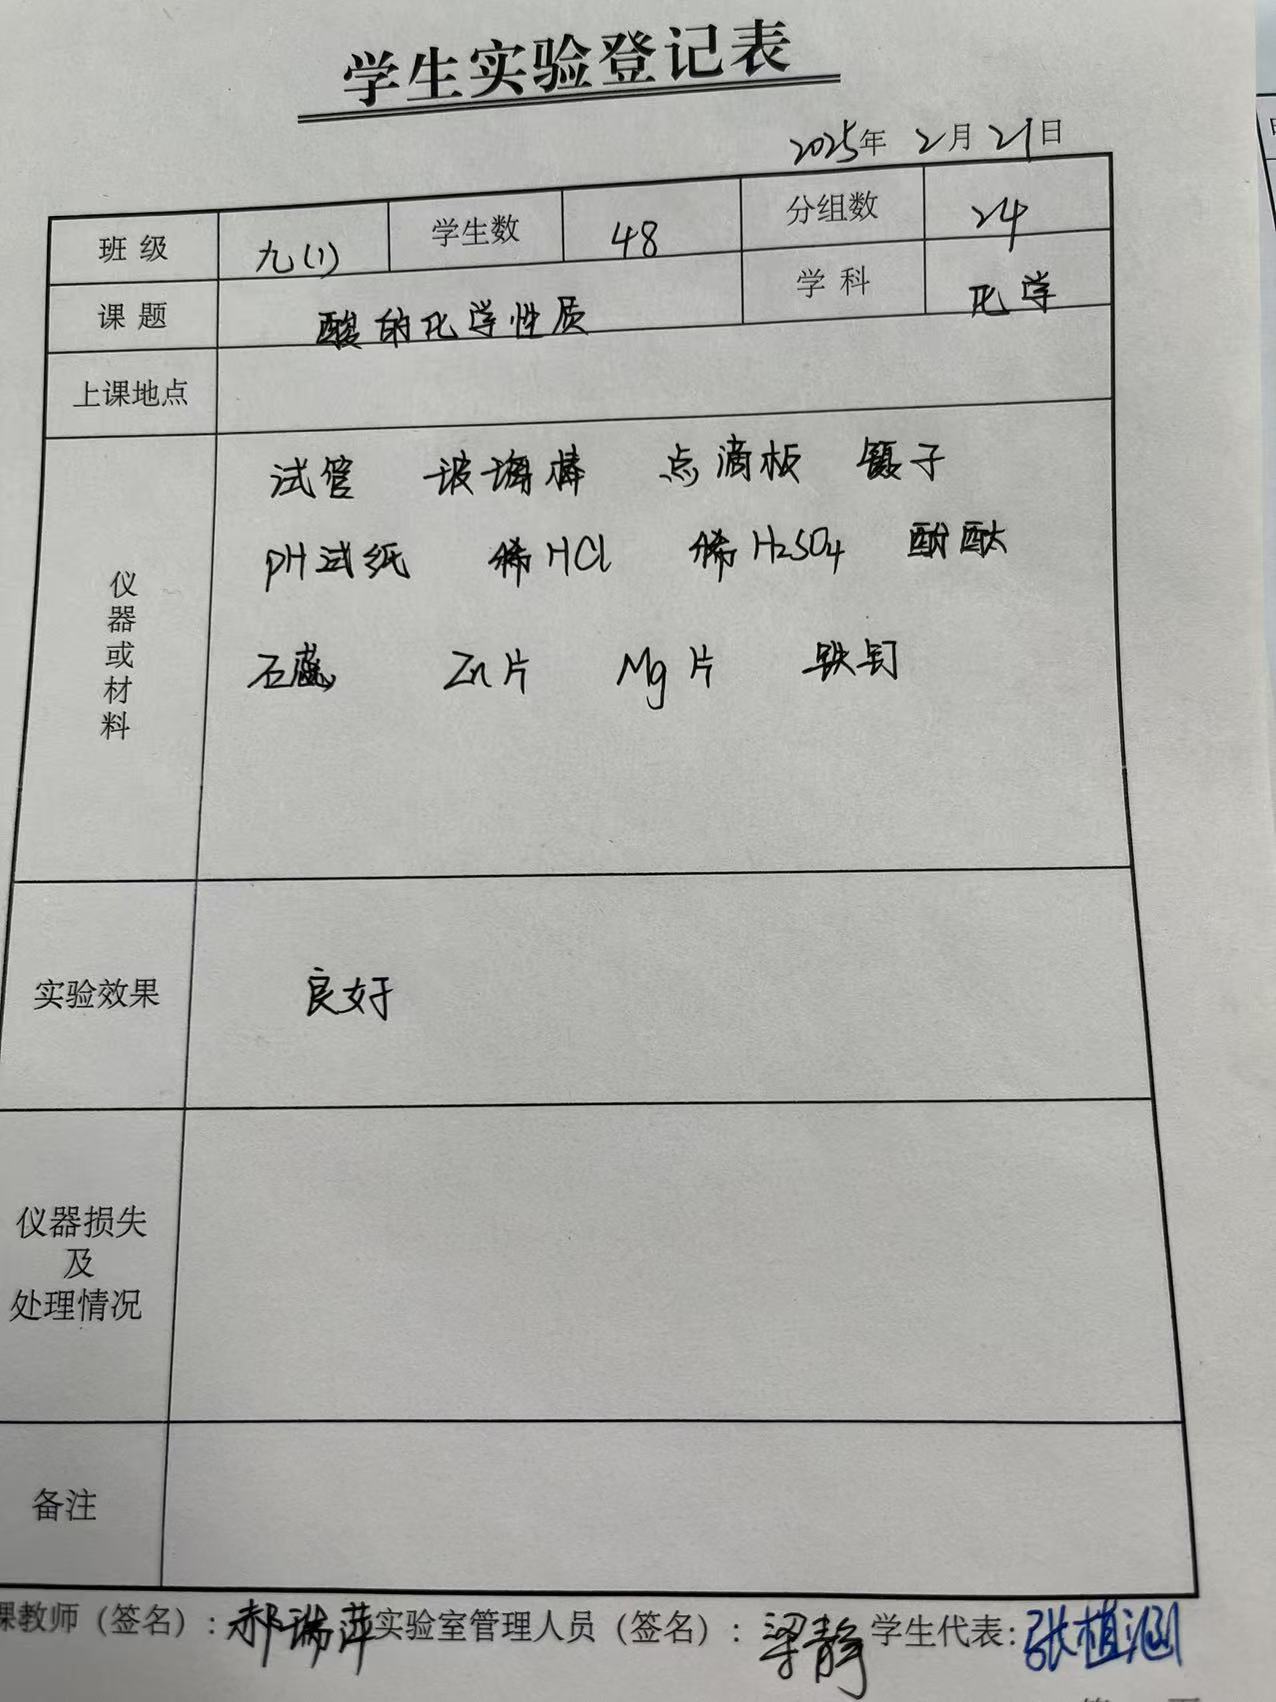 学生实验登记表
2025年 2月 21日
班级 九(1) 学生数 48 分组数 24
课题 酸的化学性质 学科 化学
上课地点
仪器或材料
试管 玻璃棒 点滴板 镊子
pH试纸 稀HCl 稀H₂SO₄ 酚酞
石蕊 Zn片 Mg片 铁钉
实验效果 良好
仪器损失
及
处理情况
备注
课教师（签名）：郝瑞萍 实验室管理人员（签名）：梁静 学生代表：张植涵